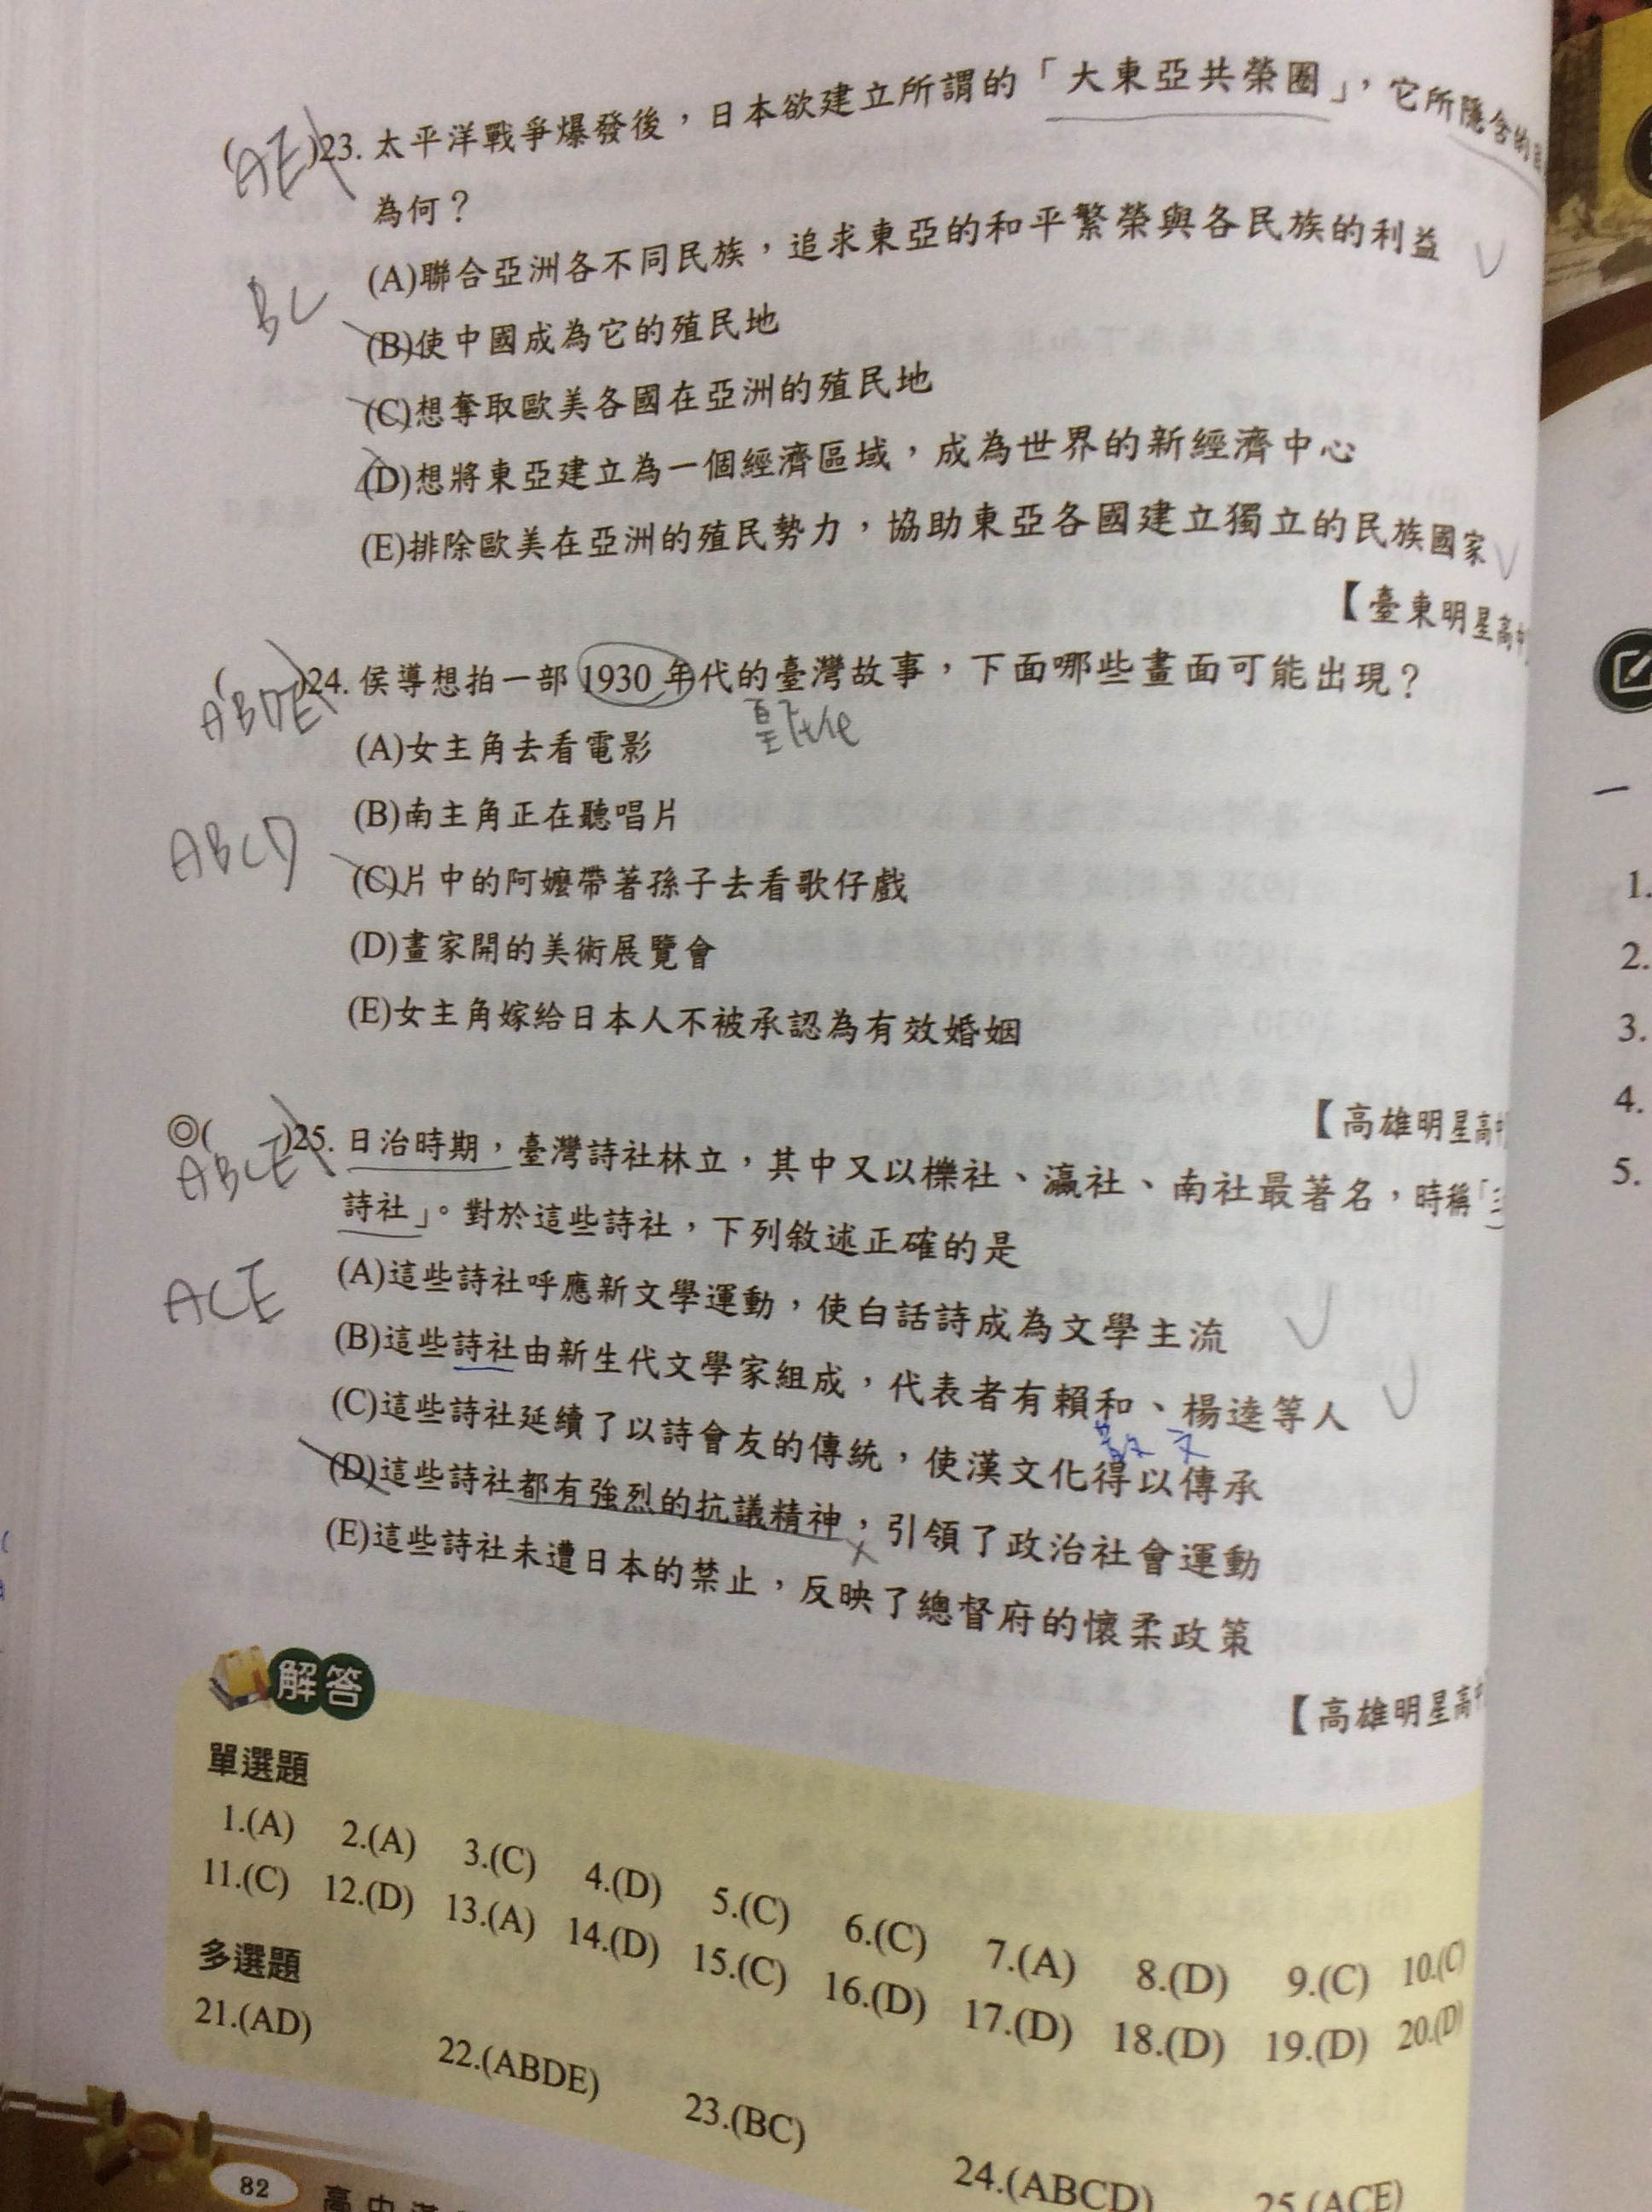 (AE)23. 太平洋戰爭爆發後，日本欲建立所謂的「大東亞共榮圈」，它所隱含的目
為何？
(A)聯合亞洲各不同民族，追求東亞的和平繁榮與各民族的利益
BC
(B)使中國成為它的殖民地
(C)想奪取歐美各國在亞洲的殖民地
(D)想將東亞建立為一個經濟區域，成為世界的新經濟中心
(E)排除歐美在亞洲的殖民勢力，協助東亞各國建立獨立的民族國家
【臺東明星高中
(ABDE)24. 侯導想拍一部 1930 年代的臺灣故事，下面哪些畫面可能出現？
(A)女主角去看電影
(B)南主角正在聽唱片
ABCD
(C)片中的阿嬤帶著孫子去看歌仔戲
(D)畫家開的美術展覽會
(E)女主角嫁給日本人不被承認為有效婚姻
【高雄明星高中
◎(ABCE)25. 日治時期，臺灣詩社林立，其中又以櫟社、瀛社、南社最著名，時稱「三
詩社」。對於這些詩社，下列敘述正確的是
(A)這些詩社呼應新文學運動，使白話詩成為文學主流
ACE
(B)這些詩社由新生代文學家組成，代表者有賴和、楊逵等人
散文
(C)這些詩社延續了以詩會友的傳統，使漢文化得以傳承
(D)這些詩社都有強烈的抗議精神，引領了政治社會運動
(E)這些詩社未遭日本的禁止，反映了總督府的懷柔政策
【高雄明星高中
解答
單選題
1.(A) 2.(A) 3.(C) 4.(D) 5.(C) 6.(C) 7.(A) 8.(D) 9.(C) 10.(C)
11.(C) 12.(D) 13.(A) 14.(D) 15.(C) 16.(D) 17.(D) 18.(D) 19.(D) 20.(D)
多選題
21.(AD) 22.(ABDE) 23.(BC) 24.(ABCD) 25.(ACE)
82
高中
一
1.
2.
3.
4.
5.